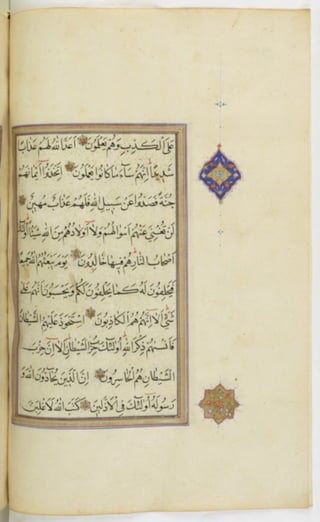 عَلَى الْكَذِبِ وَهُمْ يَعْلَمُونَ اَعَدَّ اللهُ لَهُمْ عَذَابًا
شَدِيدًا اِنَّهُمْ سَاءَ مَا كَانُوا يَعْمَلُونَ اِتَّخَذُوا اَيْمَانَهُمْ
جُنَّةً فَصَدُّوا عَنْ سَبِيلِ اللهِ فَلَهُمْ عَذَابٌ مُهِينٌ
لَنْ تُغْنِيَ عَنْهُمْ اَمْوَالُهُمْ وَلَا اَوْلَادُهُمْ مِنَ اللهِ شَيْئًا اُولٰئِكَ
اَصْحَابُ النَّارِ هُمْ فِيهَا خَالِدُونَ يَوْمَ يَبْعَثُهُمُ اللهُ جَمِيعًا
فَيَحْلِفُونَ لَهُ كَمَا يَحْلِفُونَ لَكُمْ وَيَحْسَبُونَ اَنَّهُمْ عَلَى
شَيْءٍ اَلَا اِنَّهُمْ هُمُ الْكَاذِبُونَ اِسْتَحْوَذَ عَلَيْهِمُ الشَّيْطَانُ
فَاَنْسٰهُمْ ذِكْرَ اللهِ اُولٰئِكَ حِزْبُ الشَّيْطَانِ اَلَا اِنَّ حِزْبَ
الشَّيْطَانِ هُمُ الْخَاسِرُونَ اِنَّ الَّذِينَ يُحَادُّونَ اللهَ وَ
رَسُولَهُ اُولٰئِكَ فِي الْاَذَلِّينَ كَتَبَ اللهُ لَاَغْلِبَنَّ